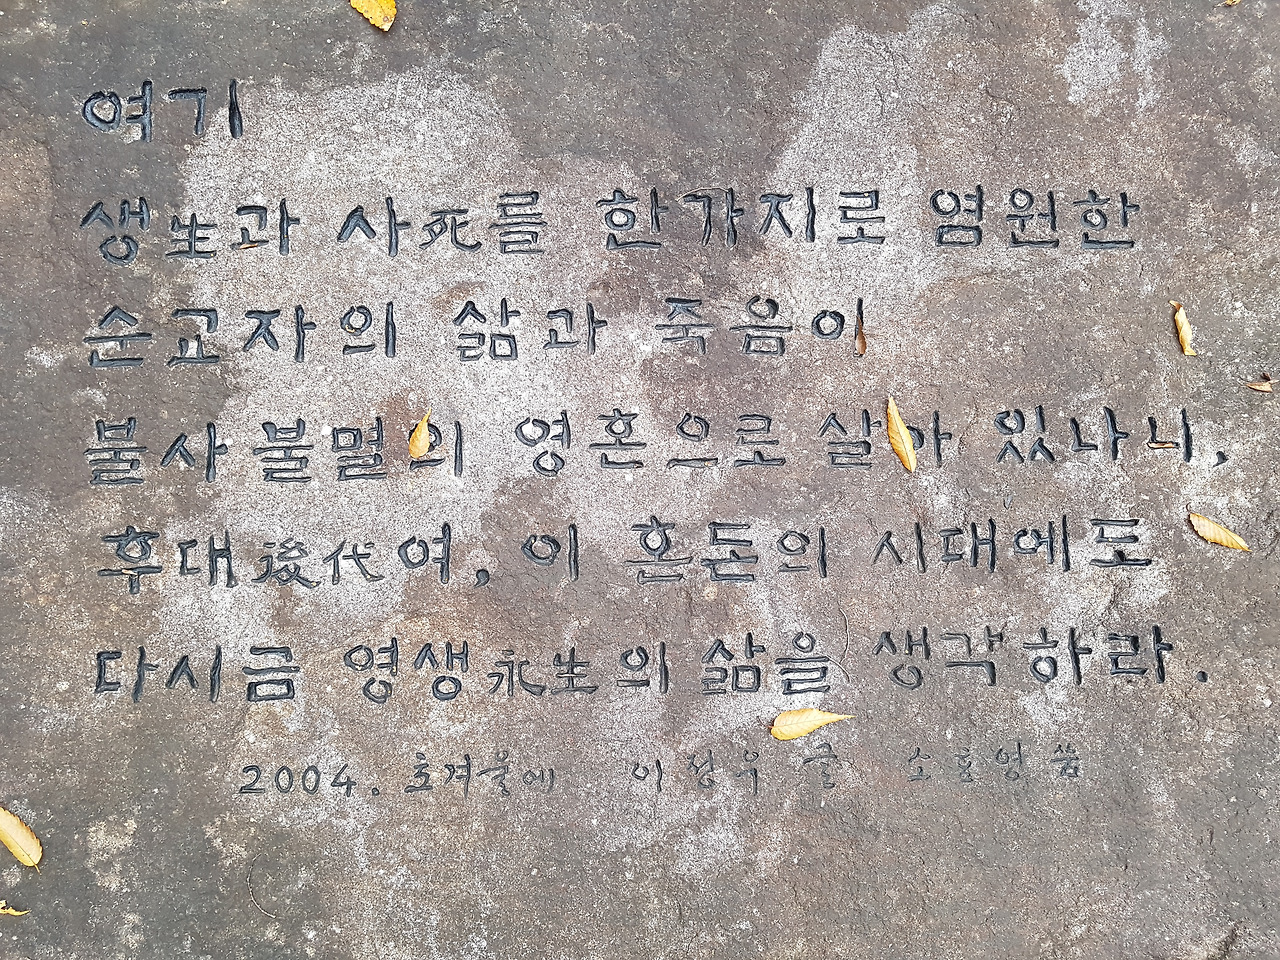 여기
생生과 사死를 한가지로 염원한
순교자의 삶과 죽음이
불사불멸의 영혼으로 살아 있나니,
후대後代여, 이 혼돈의 시대에도
다시금 영생永生의 삶을 생각하라.
2004. 초겨울에 이정우 글 소효영 씀